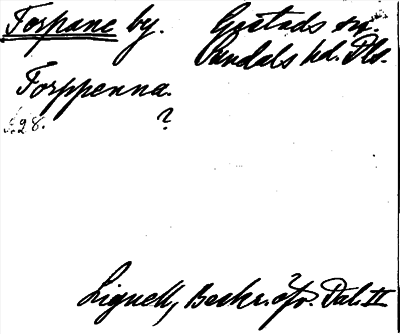 Torpane by. Gestads sn.
Sundals hd. Dls.
Torppenna.
s. 28. ?
Lignell, Beskr. öfv. Dal. II